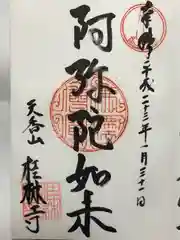 奉拝 平成二十三年一月三十一日
阿弥陀如来
天香山
桂林寺